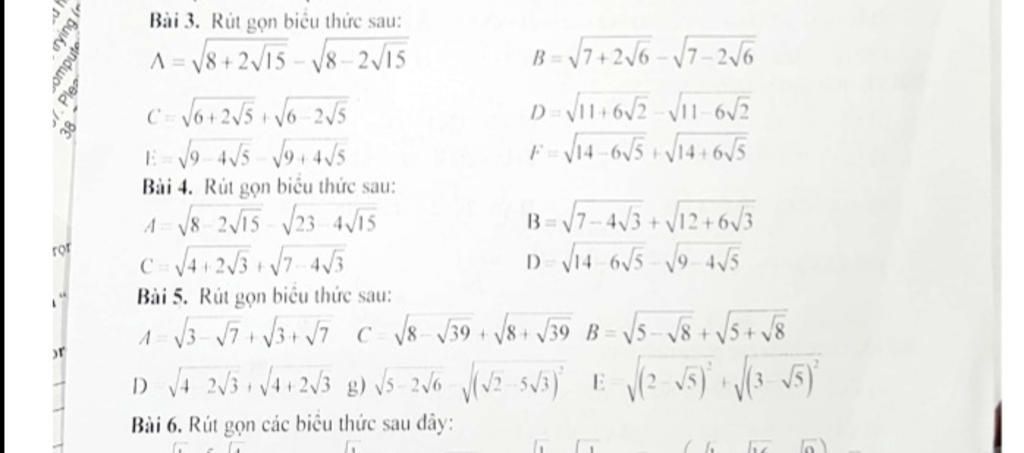 Bài 3. Rút gọn biểu thức sau:
A = √(8 + 2√15) − √(8 − 2√15) B = √(7 + 2√6) − √(7 − 2√6)
C = √(6 + 2√5) + √(6 − 2√5) D = √(11 + 6√2) − √(11 − 6√2)
E = √(9 − 4√5) − √(9 + 4√5) F = √(14 − 6√5) + √(14 + 6√5)
Bài 4. Rút gọn biểu thức sau:
A = √(8 − 2√15) − √(23 − 4√15) B = √(7 − 4√3) + √(12 + 6√3)
C = √(4 + 2√3) + √(7 − 4√3) D = √(14 − 6√5) − √(9 − 4√5)
Bài 5. Rút gọn biểu thức sau:
A = √(3 − √7) + √(3 + √7) C = √(8 − √39) + √(8 + √39) B = √(5 − √8) + √(5 + √8)
D = √(4 − 2√3) + √(4 + 2√3) g) √(5 − 2√6) − √((√2 − 5√3)²) E = √((2 − √5)²) + √((3 − √5)²)
Bài 6. Rút gọn các biểu thức sau đây:
38